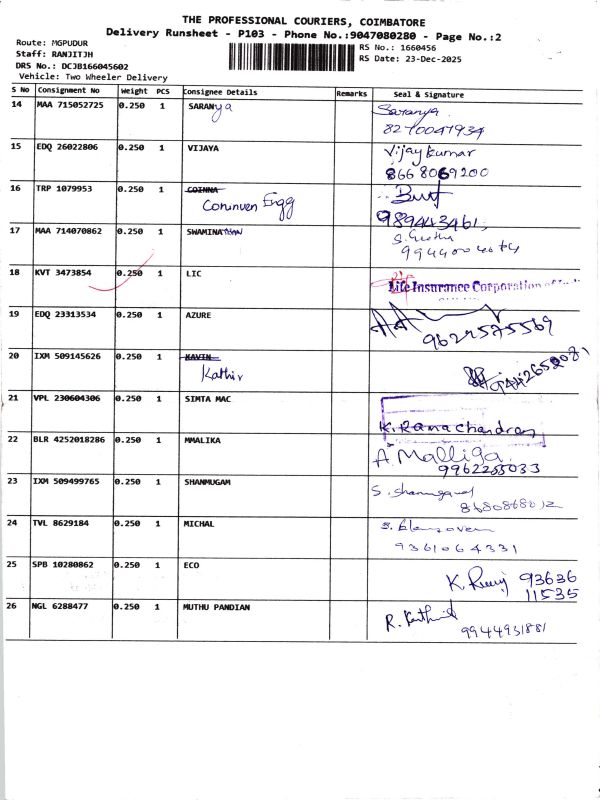 THE PROFESSIONAL COURIERS, COIMBATORE
Delivery Runsheet - P103 - Phone No.:9047080280 - Page No.:2
Route: MGPUDUR
Staff: RANJITJH
DRS No.: DCJB166045602
Vehicle: Two Wheeler Delivery
RS No.: 1660456
RS Date: 23-Dec-2025
S No Consignment No Weight PCS Consignee Details Remarks Seal & Signature
14 MAA 715052725 0.250 1 SARANya Saranya
8270041934
15 EDQ 26022806 0.250 1 VIJAYA Vijaykumar
8668069200
16 TRP 1079953 0.250 1 COINNA
Coninven Engg
989443461
17 MAA 714070862 0.250 1 SWAMINA
18 KVT 3473854 0.250 1 LIC Life Insurance Corporation of
19 EDQ 23313534 0.250 1 AZURE
9629575569
20 IXM 509145626 0.250 1 KAVIN
Kathir
9442652071
21 VPL 230604306 0.250 1 SIMTA MAC
K. Ramachandran
22 BLR 4252018286 0.250 1 MMALIKA A. Malliga
9962255033
23 IXM 509499765 0.250 1 SHANMUGAM S. Shanmugam
8680868012
24 TVL 8629184 0.250 1 MICHAL
9361064331
25 SPB 10280862 0.250 1 ECO
93636
11535
26 NGL 6288477 0.250 1 MUTHU PANDIAN
9944931881